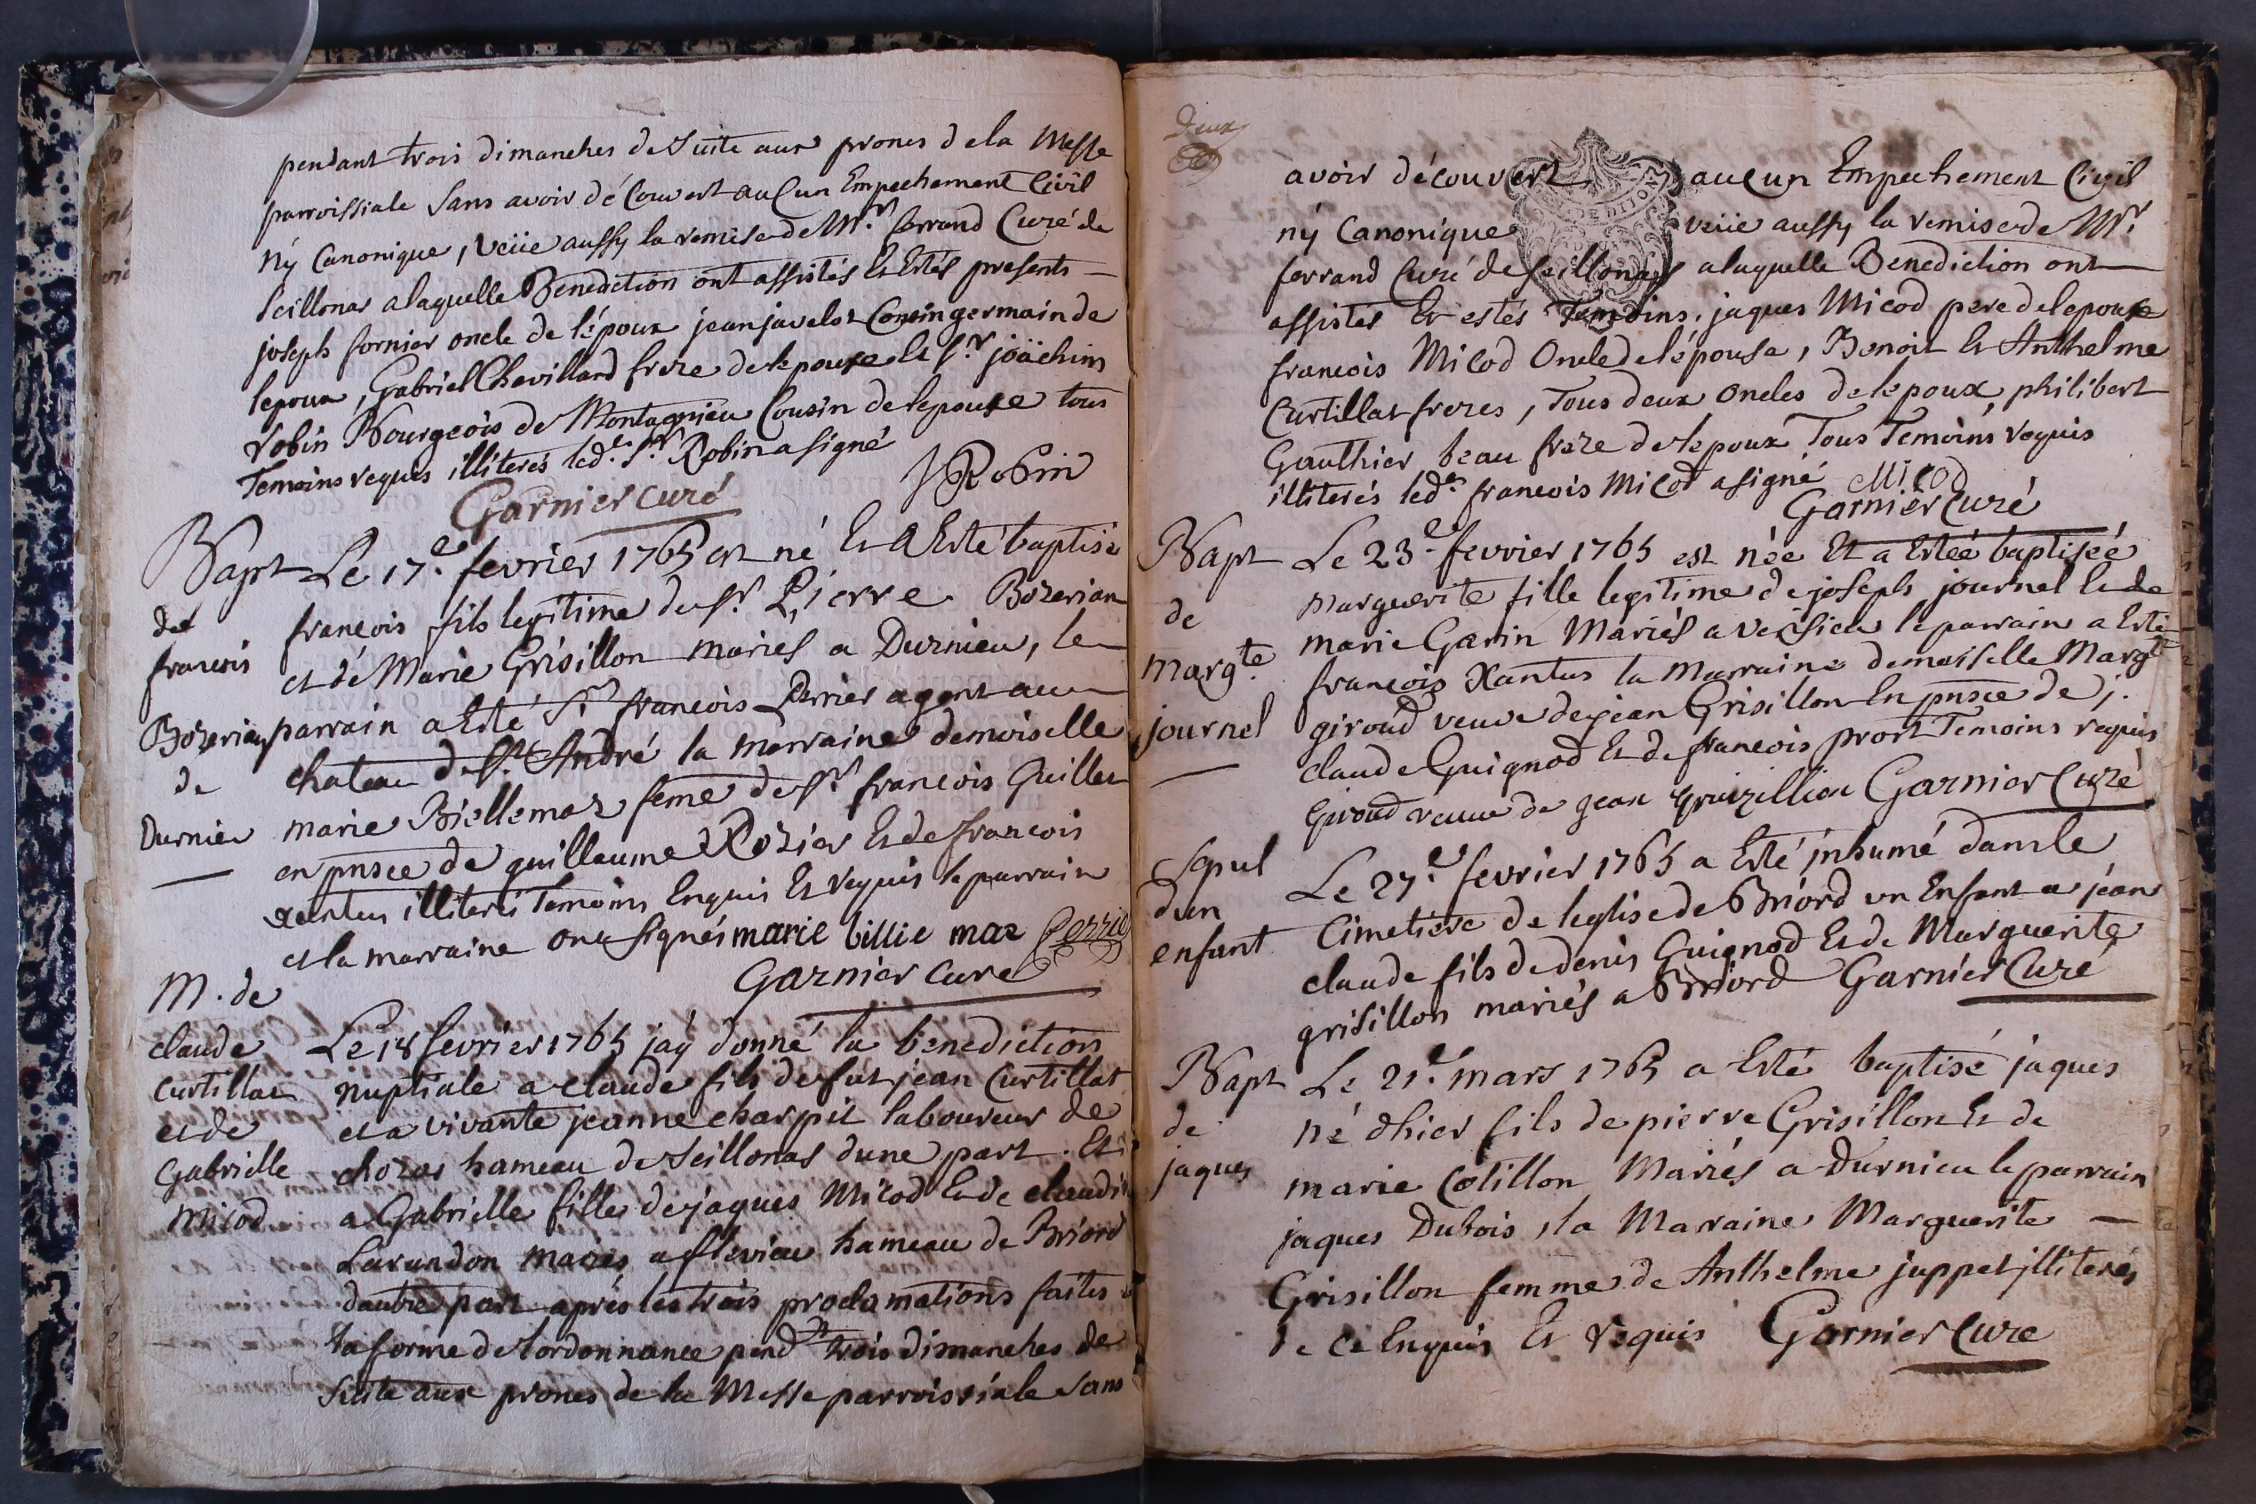 pendant trois dimanches de Suite aux prones dela Messe
parroissiale Sans avoir découvert aucun Empechement Civil
ny Canonique, veüe aussy la remise de Mr. ferrand Curé de
Seillonas alaquelle Benediction ont assistés et Estés presents
joseph fornier oncle de l'époux jean javelot Cousin germain de
lepoux, Gabriel Chevillard frere de lepouse et Sr. joächim
robin Bourgeois de Montagnieu Cousin de lepouse tous
Temoins requis illiterés led. Sr. Robin a signé
JRobin
Garnier curé
Bapt Le 17e. fevrier 1765 est né Et a Esté baptisé
de francois fils legitime du sr. Pierre Bozerian
francois et de Marie Grisillon mariés a Durnieu, le
Bozerian parrain a Esté Sr. francois Perrier agent au
de chateau de St. André la marraine demoiselle
Durnieu marie Biellemaz feme de Sr. francois Guillet
en pnsce de guillaume Rozier Et de francois
xantus illiterés Temoins Enquis Et requis le parrain
et la marraine ont signés marie billie maz Perrie
Garnier cure
M. de
claude Le 18 fevrier 1765 jaÿ donné la benediction
Curtillat nuptiale a claude fils de fut jean Curtillat
et de et a vivante jeanne charpit laboureur de
Gabrielle chozas hameau de Seillonas dune part. Et
Micod a Gabrielle fille de jaques Micod Et de claudi
Larandon mariés a flevieu hameau de Briord
dautre part aprés les trois proclamations faites
la forme de lordonnance pendt trois dimanches de
Suite aux prones de la Messe parroissiale Sans
Deux
avoir découvert aucun Empechement Civil
ny Canonique veüe aussy la remise de Mr.
ferrand Curé de Seillonas alaquelle Benediction ont
assistés Et estés Temoins. jaques Micod pere de lepouse
francois Micod Oncle de lépouse, Benoit Et Anthelme
Curtillat freres, Tous deux oncles de lepoux, philibert
Gauthier beau frere de lepoux Tous Temoins requis
illiterés led. francois Micod a signé Micod
Garnier Curé
Bapt Le 23e. fevrier 1765 est née Et a Esteé baptiseé
de marguerite fille legitime de joseph journel Et de
margte. marie Garin Mariés a Verisieu le parrain a Esté
journel francois Xantus la Marraine demoiselle Margte
giroud veuve de jean Grisillon En pnsce de j.
claude Guignod Et de francois prost Temoins requis
Giroud veuve de jean gruizillion Garnier Curé
Sepul Le 27e. fevrier 1765 a Esté jnhumé dans le
dun Cimetiére de leglise de Briord un Enfant a jean
enfant claude fils de denis Guignod Et de Marguerite
grisillon mariés a Briord Garnier Curé
Bapt Le 21e. mars 1765 a Esté baptisé jaques
de né dhier fils de pierre Grisillon Et de
jaques marie Cotillon Mariés a Durnieu le parrain
jaques Dubois, la Maraine Marguerite
Grisillon femme de Anthelme juppet jlliterés
de ce Enquis Et requis Garnier Cure